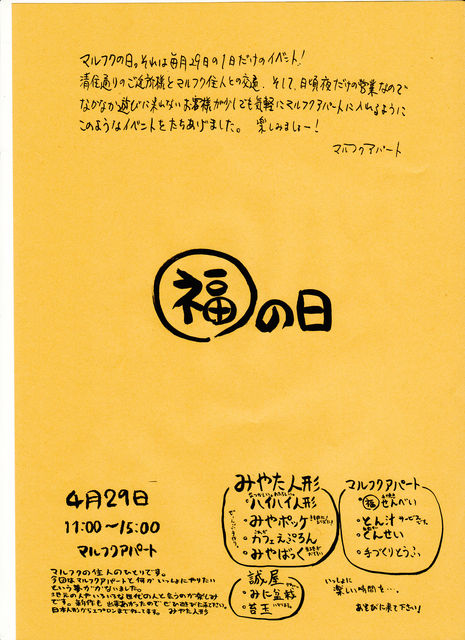 マルフクの日。それは毎月29日の1日だけのイベント!
清住通りのご近所様とマルフク住人との交通、そして、日頃夜だけの営業なので
なかなか遊びに来れないお客様が少しでも気軽にマルフクアパートに入れるように
このようなイベントをたちあげました。 楽しみましょー!
マルフクアパート
福の日
4月29日
11:00〜15:00
マルフクアパート
マルフクの住人のひとりです。
今回はマルフクアパートと何かいっしょにやりたい
という事がかないました。
地元の人やいろいろな世代の人と会うのが楽しみ
です。新作も出来あがったので ぜひ遊びに来てください。
みやた人形
みやた人形
・ハイハイ人形
・みやポッケ
・カフェえぷろん
・みやばっく
誠屋
・みに盆栽
・苔玉
マルフクアパート
・福せんべい
・とん汁
・くんせい
・手づくりとうふ
いっしょに
楽しい時間を…。
あそびに来て下さい!